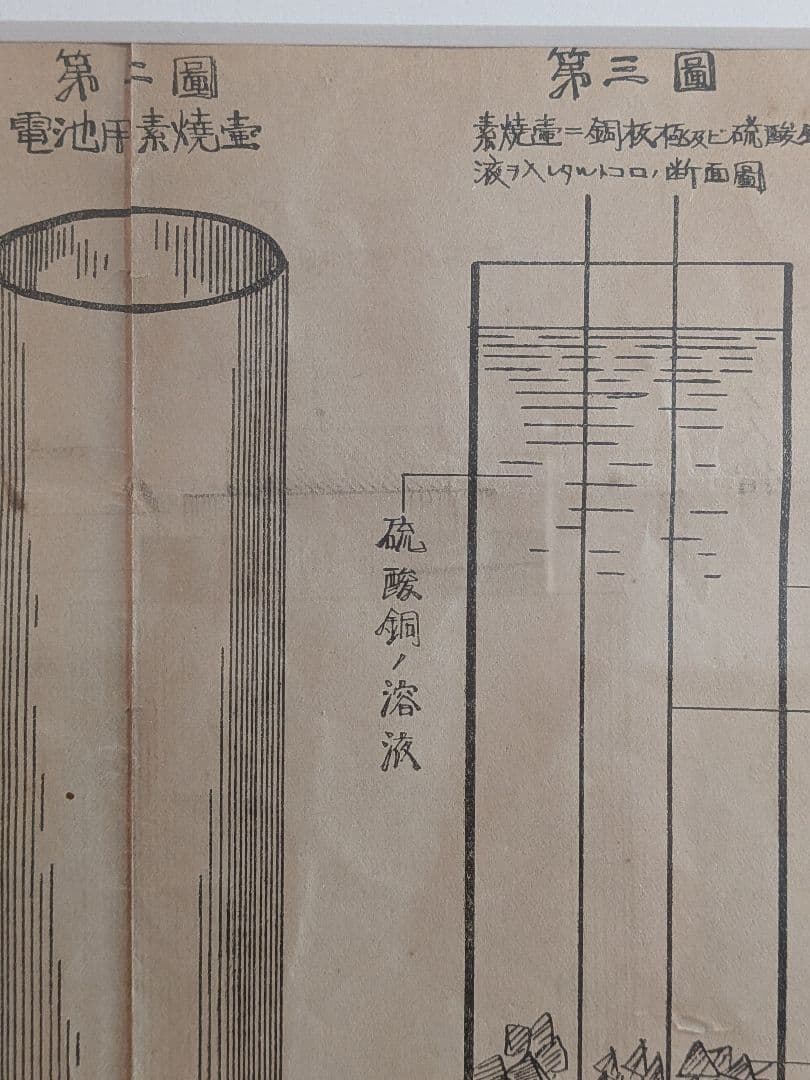 第二圖
電池用素燒壷
第三圖
素燒壷＝銅板極及ビ硫酸
液ヲ入レタルトコロノ断面圖
硫酸銅ノ溶液